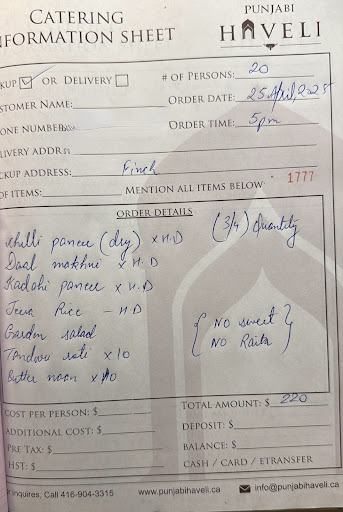 CATERING
NFORMATION SHEET
PUNJABI
HAVELI
KUP ☑ OR DELIVERY ☐
# OF PERSONS: 20
STOMER NAME:
ORDER DATE: 25 April, 2025
ONE NUMBER:
ORDER TIME: 5pm
LIVERY ADDR
CKUP ADDRESS: Finch
OF ITEMS: MENTION ALL ITEMS BELOW 1777
ORDER DETAILS
chilli paneer (dry) x H.D (3/4) Quantity
Daal makhni x H.D
Kadahi paneer x H.D
Jeera Rice - H.D
Garden salad
Tandoori roti x 10
Butter naan x 10
{ NO sweet }
{ NO Raita }
COST PER PERSON: $
TOTAL AMOUNT: $ 220
ADDITIONAL COST: $
DEPOSIT: $
PRE TAX: $
BALANCE: $
HST: $
CASH / CARD / ETRANSFER
r inquires, Call 416-904-3315 www.punjabihaveli.ca info@punjabihaveli.ca